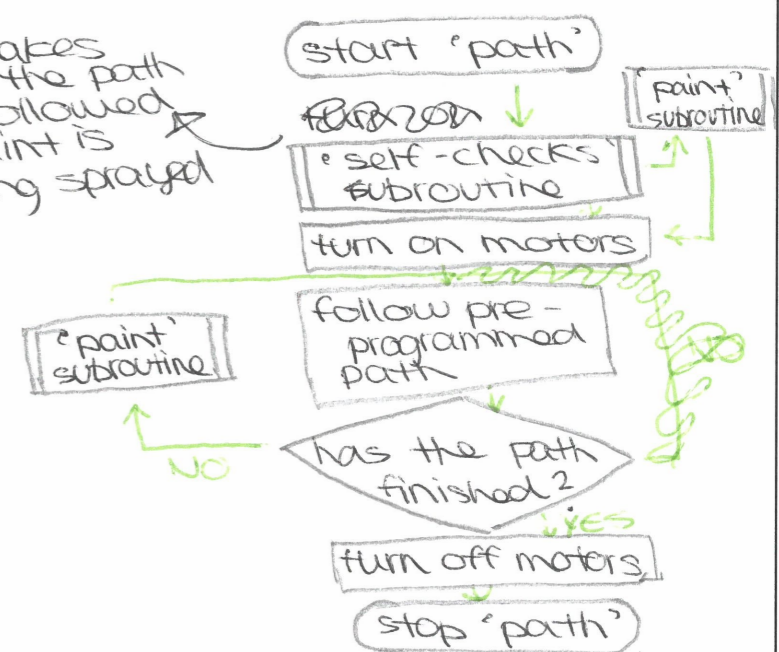 akes
the path
ollowed
int is
ng sprayed
start 'path'
'paint'
subroutine
'self-checks'
subroutine
turn on motors
follow pre-
programmed
path
'paint'
subroutine
has the path
finished?
NO
YES
turn off motors
stop 'path'